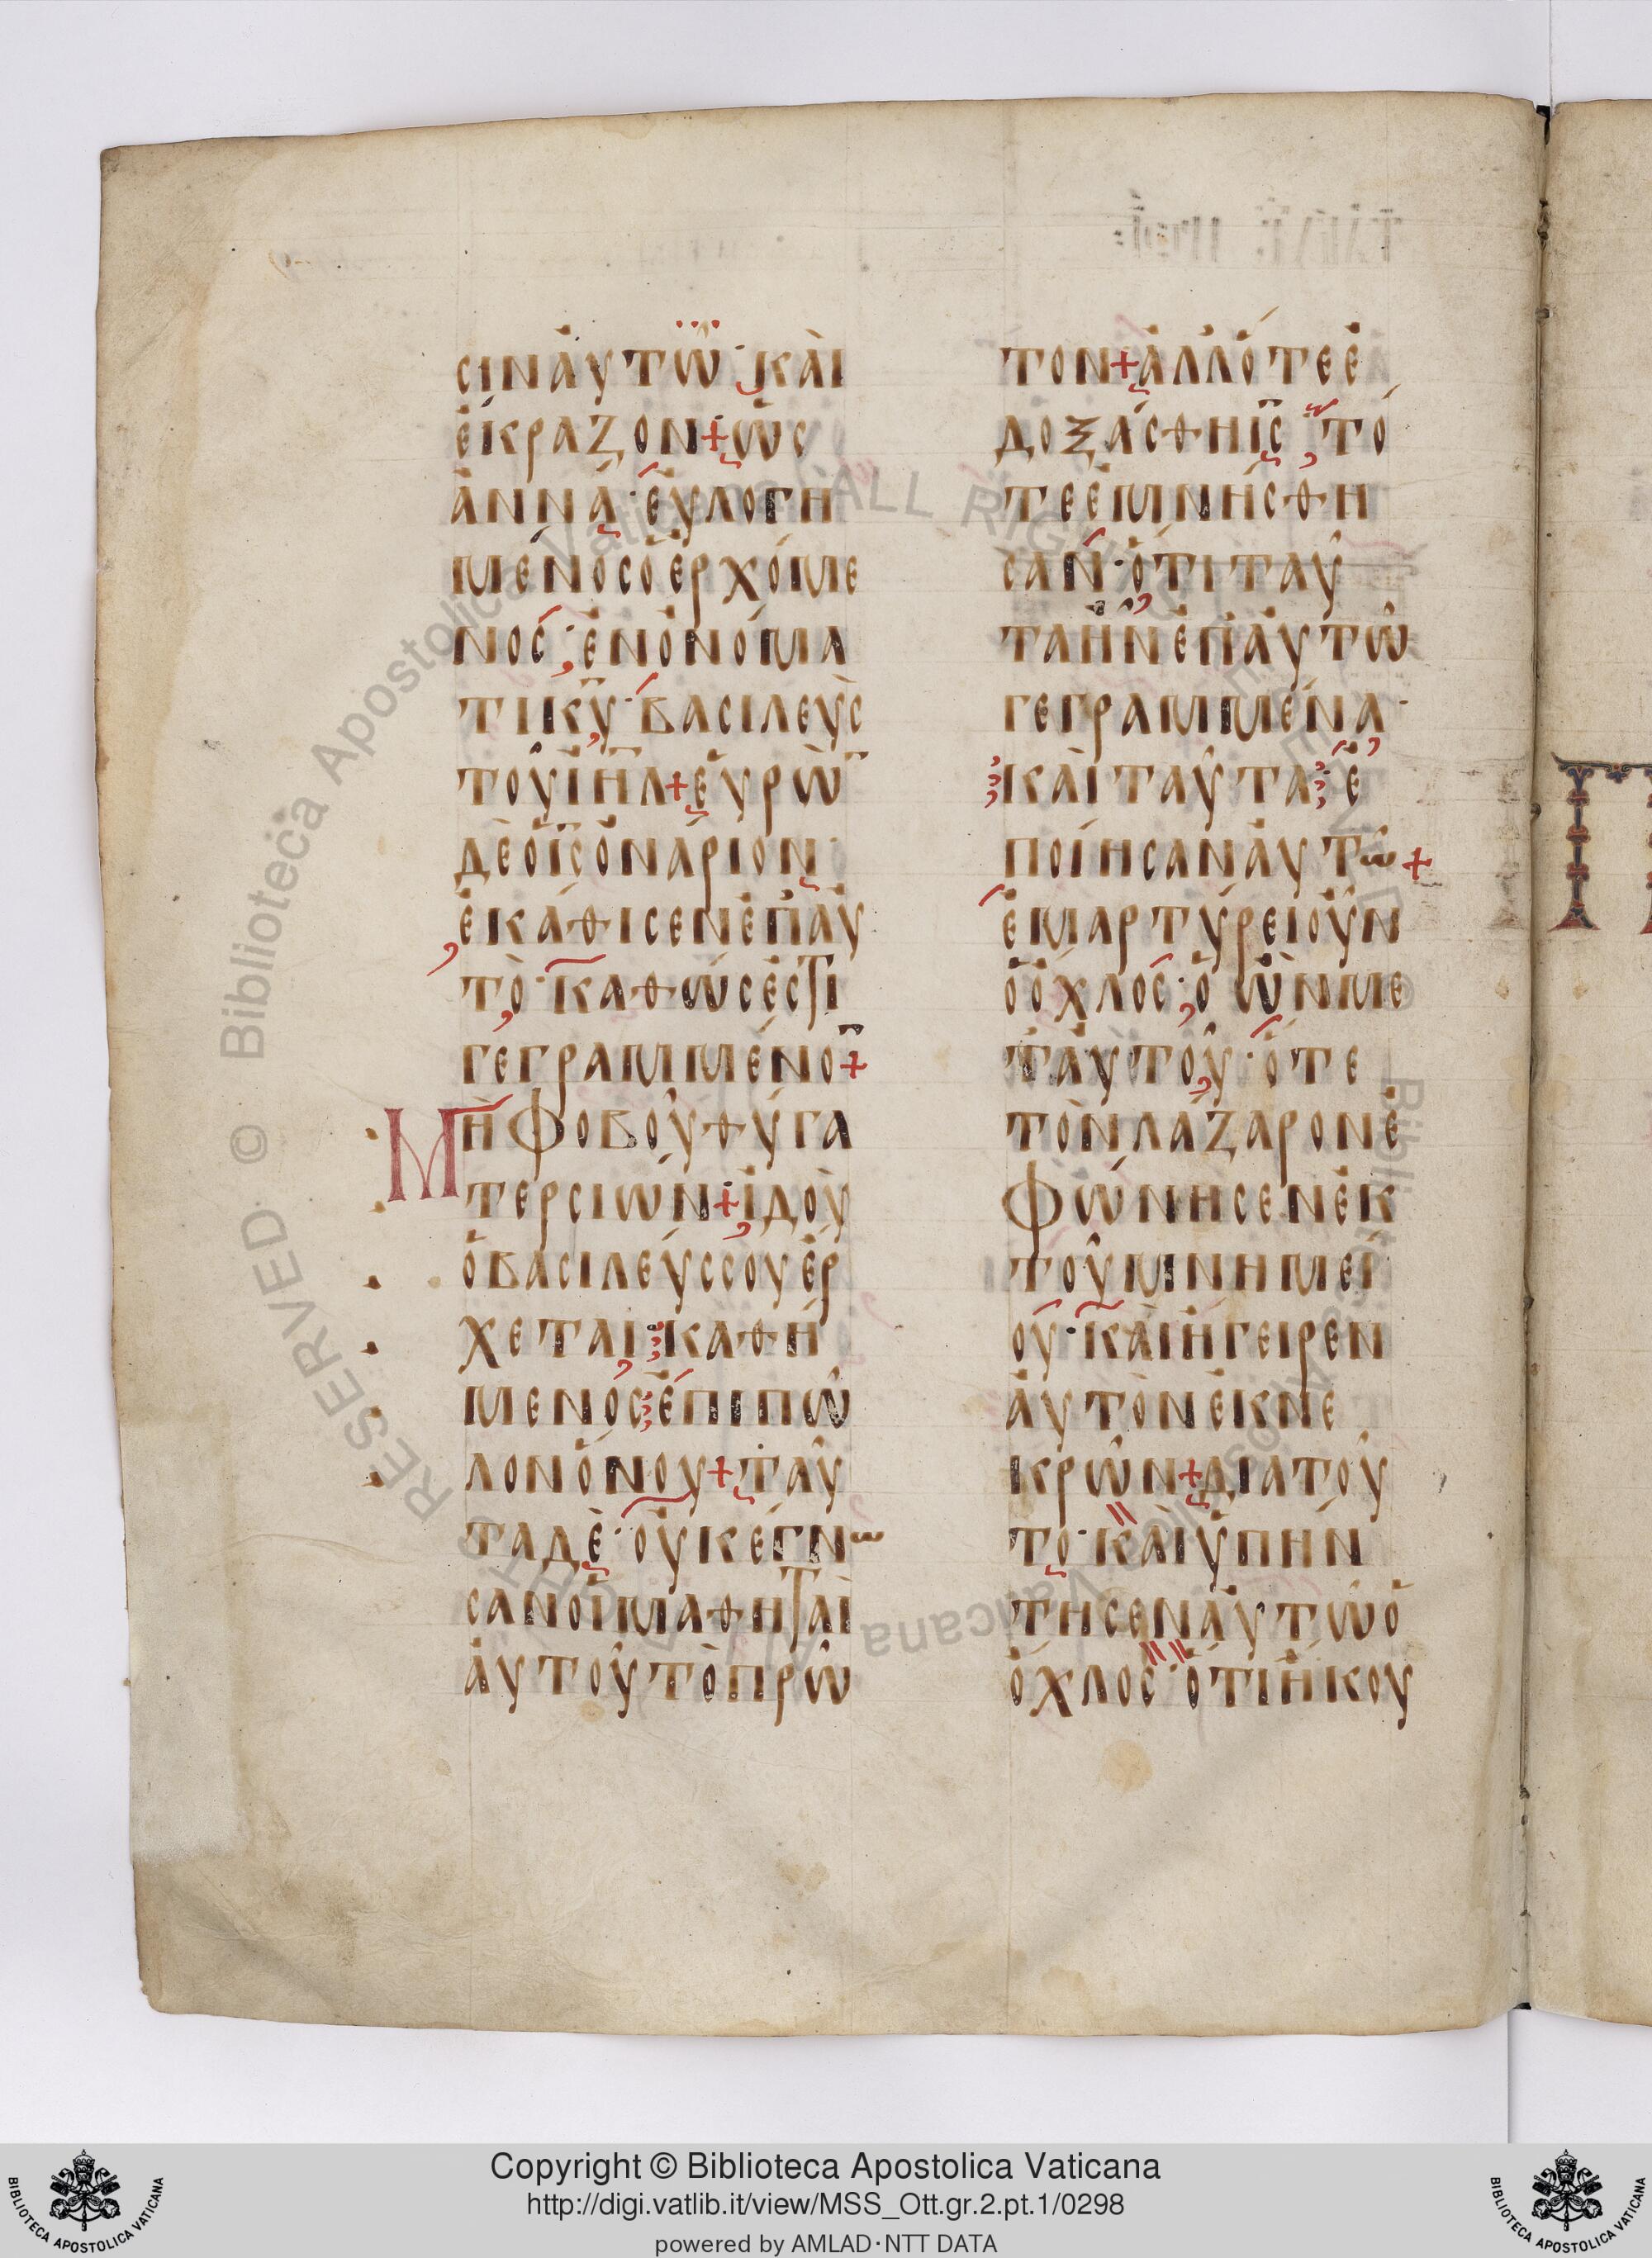 σιναὐτῶ· καὶ
ἐκραζον + ὡσ
ἀννά· ἐυλογη
μένοσ ὁ ἐρχόμε
νοσ· ἐν ὀνόμα
τι κ̅υ̅· βασιλεὺσ
τοῦ ι̅η̅λ̅ + ἑυρὼ̅
δὲ ὁ ι̅σ̅ ὀνάριον·
ἐκάθισεν ἐπ' ἀυ
τὸ· καθώσ ἐστι
γεγραμμένο̅ +
Μὴ φοβοῦ θύγα
τερ σιών + ἰδοὺ
ὁ βασιλεύσ σου ἐρ
χεται· καθή
μενοσ ἐπι πῶ
λον ὄνου + ταῦ
τα δὲ· οὐκ ἔγνω
σαν οἱ μαθηταὶ
ἀυτοῦ τὸ πρῶ
τον + ἀλλ' ὅτε ἐ
δοξάσθη ι̅σ̅· τό
τε ἐμνήσθη
σαν· ὅτι ταῦ
τα ἦν ἐπ' ἀυτῶ
γεγραμμένα·
καὶ ταῦτα ἐ
ποίησαν ἀυτῶ +
ἐμαρτύρει οὖν
ὁ ὄχλοσ· ὁ ὢν με
τ' ἀυτοῦ· ὅτε
τὸν λάζαρον ἐ
φώνησεν ἐκ
τοῦ μνημεί
ου· καὶ ἤγειρεν
ἀυτὸν ἐκ νε
κρῶν + δια τοῦ
το· καὶ ὑπήν
τησεν ἀυτῶ ὁ
ὄχλοσ· ὅτι ἤκου
Copyright © Biblioteca Apostolica Vaticana
http://digi.vatlib.it/view/MSS_Ott.gr.2.pt.1/0298
powered by AMLAD·NTT DATA
BIBLIOTECA APOSTOLICA VATICANA
BIBLIOTECA APOSTOLICA VATICANA